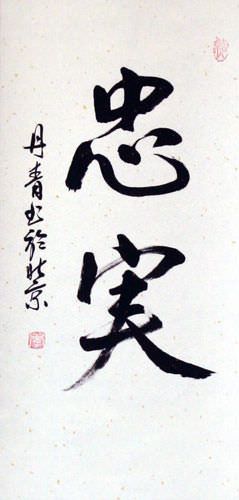 忠実
丹青书於北京